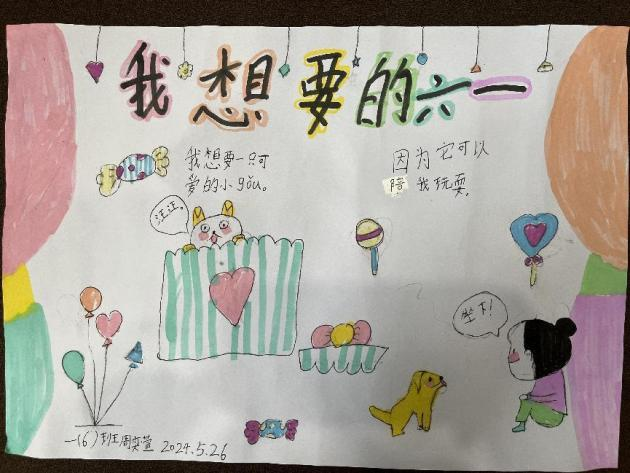 我想要的六一
我想要一只可
爱的小gǒu。
因为它可以
陪我玩耍
汪汪。
坐下!
一(6)班周奕萱 2024.5.26